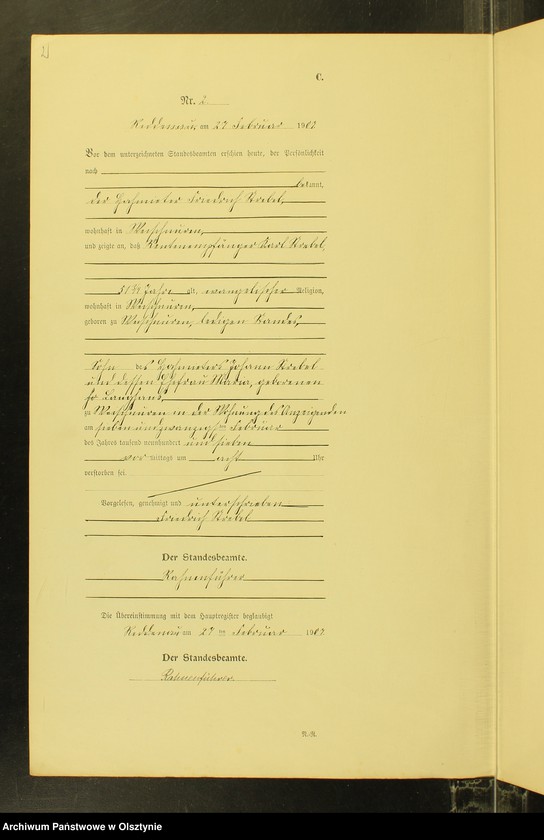 2
C.
Nr. 2
Reddenau, am 27 Februar 1907
Vor dem unterzeichneten Standesbeamten erschien heute, der Persönlichkeit
nach
bekannt,
der Hofmeister Friedrich Strebel,
wohnhaft in
und zeigte an, daß Rentenempfänger Karl Strebel,
Jahre alt, evangelischer Religion,
wohnhaft in
geboren zu ledigen Standes,
Sohn des Johann Strebel
und dessen Ehefrau Maria, geborenen
Langhans,
zu in der Wohnung des Anzeigenden
am sieben und zwanzigsten Februar
des Jahres tausend neunhundert und sieben
vor mittags um acht Uhr
verstorben sei.
Vorgelesen, genehmigt und unterschrieben
Friedrich Strebel
Der Standesbeamte.
Die Übereinstimmung mit dem Hauptregister beglaubigt
Reddenau am 27 ten Februar 1907
Der Standesbeamte.
Archiwum Państwowe w Olsztynie